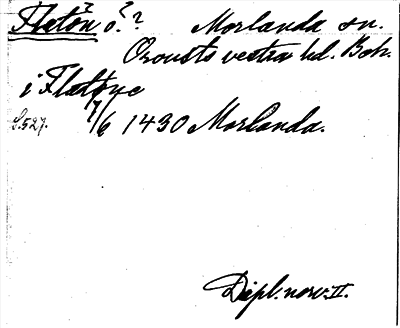 Flatön ö.? ? Morlanda sn.
Orousts vestra hd. Boh.
i Flatøye
S.527. 7/6 1430 Morlanda.
Dipl. norv. II.